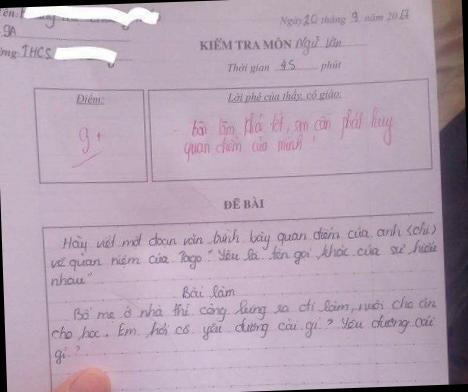 Ngày 20 tháng 9 năm 2017
9A
KIỂM TRA MÔN Ngữ Văn
THCS
Thời gian 45 phút
Điểm:
Lời phê của thầy, cô giáo:
9+
- bài làm khá tốt, em cần phát huy
quan điểm của mình!
ĐỀ BÀI
Hãy viết một đoạn văn trình bày quan điểm của anh (chị)
về quan niệm của Tago "Yêu là tên gọi khác của sự hiểu
nhau"
Bài làm
Bố mẹ ở nhà thì còng lưng ra đi làm, nuôi cho ăn
cho học. Em hỏi cô yêu đương cái gì? Yêu đương cái
gì?